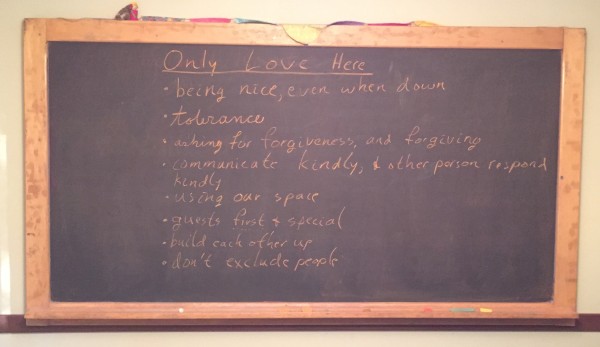 Only Love Here
• being nice, even when down
• tolerance
• asking for forgiveness, and forgiving
• communicate kindly, & other person respond
kindly
• using our space
• guests first & special
• build each other up
• don't exclude people